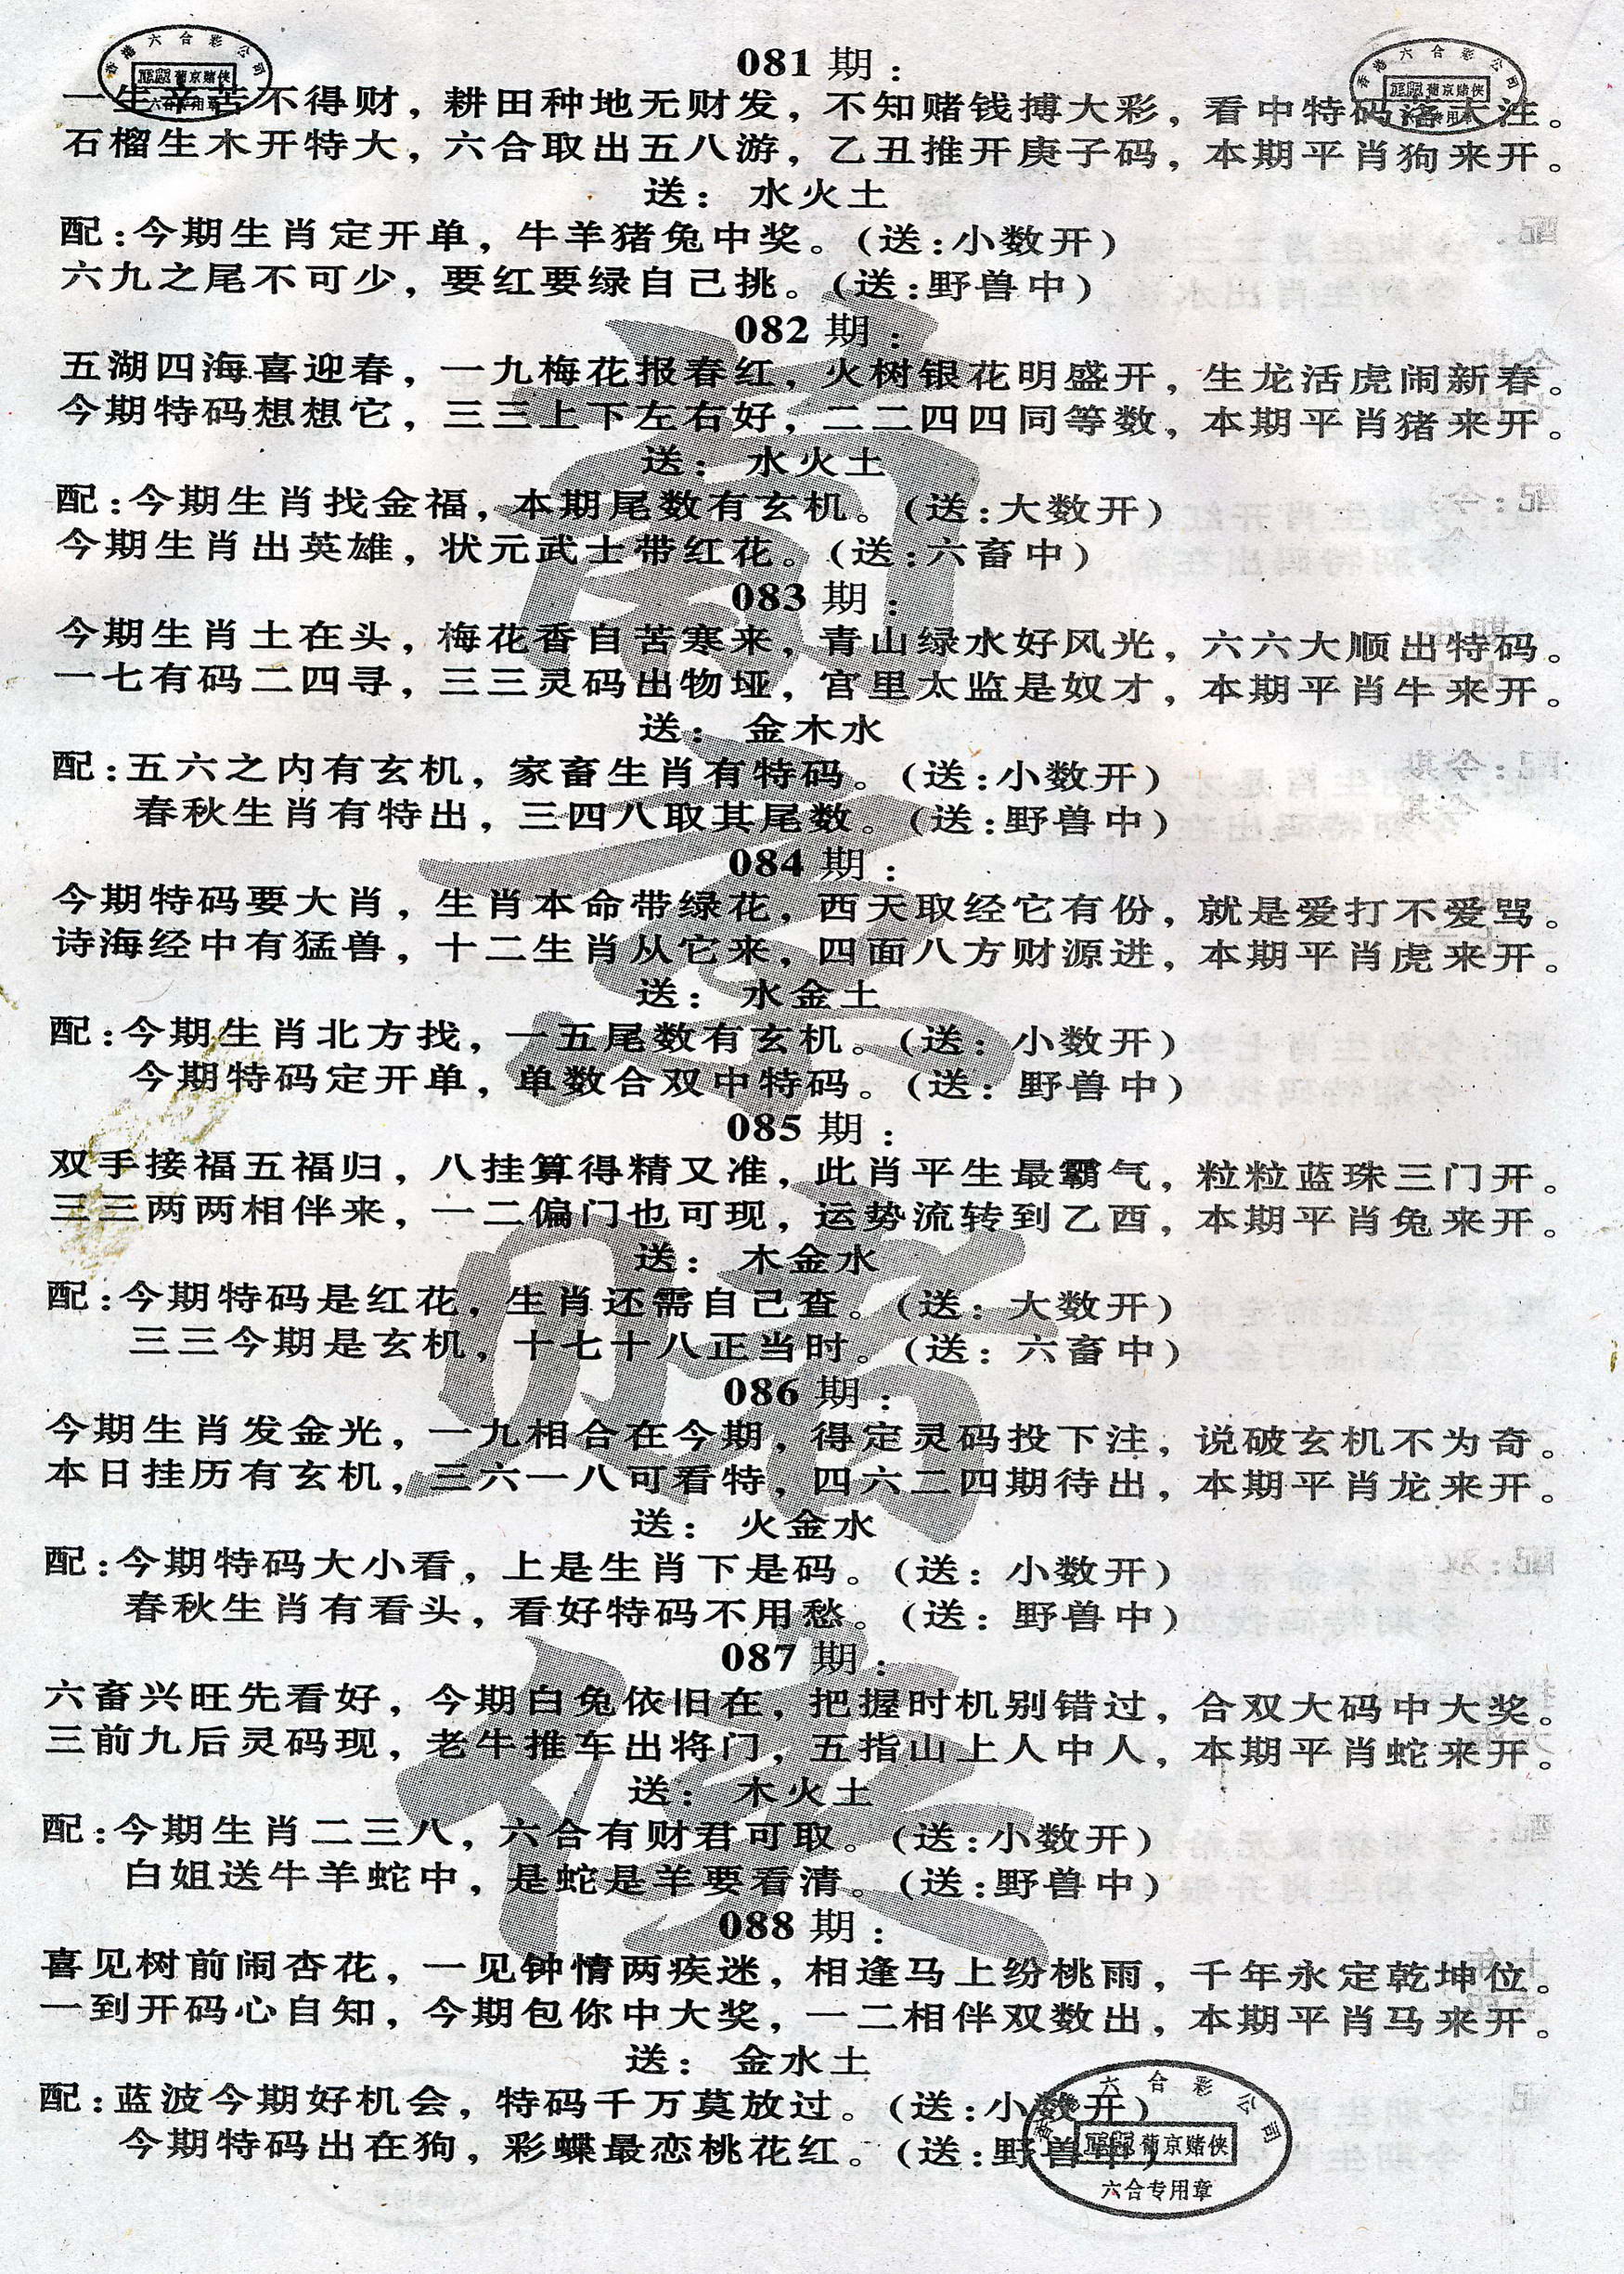 香港六合彩公司
正版 葡京赌侠
六合专用章
香港六合彩公司
正版 葡京赌侠
081 期：
一生辛苦不得财，耕田种地无财发，不知赌钱搏大彩，看中特码落大注。
石榴生木开特大，六合取出五八游，乙丑推开庚子码，本期平肖狗来开。
送：水火土
配：今期生肖定开单，牛羊猪兔中奖。（送：小数开）
六九之尾不可少，要红要绿自己挑。（送：野兽中）
082 期：
五湖四海喜迎春，一九梅花报春红，火树银花明盛开，生龙活虎闹新春。
今期特码想想它，三三上下左右好，二二四四同等数，本期平肖猪来开。
送：水火土
配：今期生肖找金福，本期尾数有玄机。（送：大数开）
今期生肖出英雄，状元武士带红花。（送：六畜中）
083 期：
今期生肖土在头，梅花香自苦寒来，青山绿水好风光，六六大顺出特码。
一七有码二四寻，三三灵码出物垭，宫里太监是奴才，本期平肖牛来开。
送：金木水
配：五六之内有玄机，家畜生肖有特码。（送：小数开）
春秋生肖有特出，三四八取其尾数。（送：野兽中）
084 期：
今期特码要大肖，生肖本命带绿花，西天取经它有份，就是爱打不爱骂。
诗海经中有猛兽，十二生肖从它来，四面八方财源进，本期平肖虎来开。
送：水金土
配：今期生肖北方找，一五尾数有玄机。（送：小数开）
今期特码定开单，单数合双中特码。（送：野兽中）
085 期：
双手接福五福归，八挂算得精又准，此肖平生最霸气，粒粒蓝珠三门开。
三三两两相伴来，一二偏门也可现，运势流转到乙酉，本期平肖兔来开。
送：木金水
配：今期特码是红花，生肖还需自己查。（送：大数开）
三三今期是玄机，十七十八正当时。（送：六畜中）
086 期：
今期生肖发金光，一九相合在今期，得定灵码投下注，说破玄机不为奇。
本日挂历有玄机，三六一八可看特，四六二四期待出，本期平肖龙来开。
送：火金水
配：今期特码大小看，上是生肖下是码。（送：小数开）
春秋生肖有看头，看好特码不用愁。（送：野兽中）
087 期：
六畜兴旺先看好，今期白兔依旧在，把握时机别错过，合双大码中大奖。
三前九后灵码现，老牛推车出将门，五指山上人中人，本期平肖蛇来开。
送：木火土
配：今期生肖二三八，六合有财君可取。（送：小数开）
白姐送牛羊蛇中，是蛇是羊要看清。（送：野兽中）
088 期：
喜见树前闹杏花，一见钟情两疾迷，相逢马上纷桃雨，千年永定乾坤位。
一到开码心自知，今期包你中大奖，一二相伴双数出，本期平肖马来开。
送：金水土
配：蓝波今期好机会，特码千万莫放过。（送：小数开）
今期特码出在狗，彩蝶最恋桃花红。（送：野兽中）
香港六合彩公司
正版 葡京赌侠
六合专用章
葡京赌侠